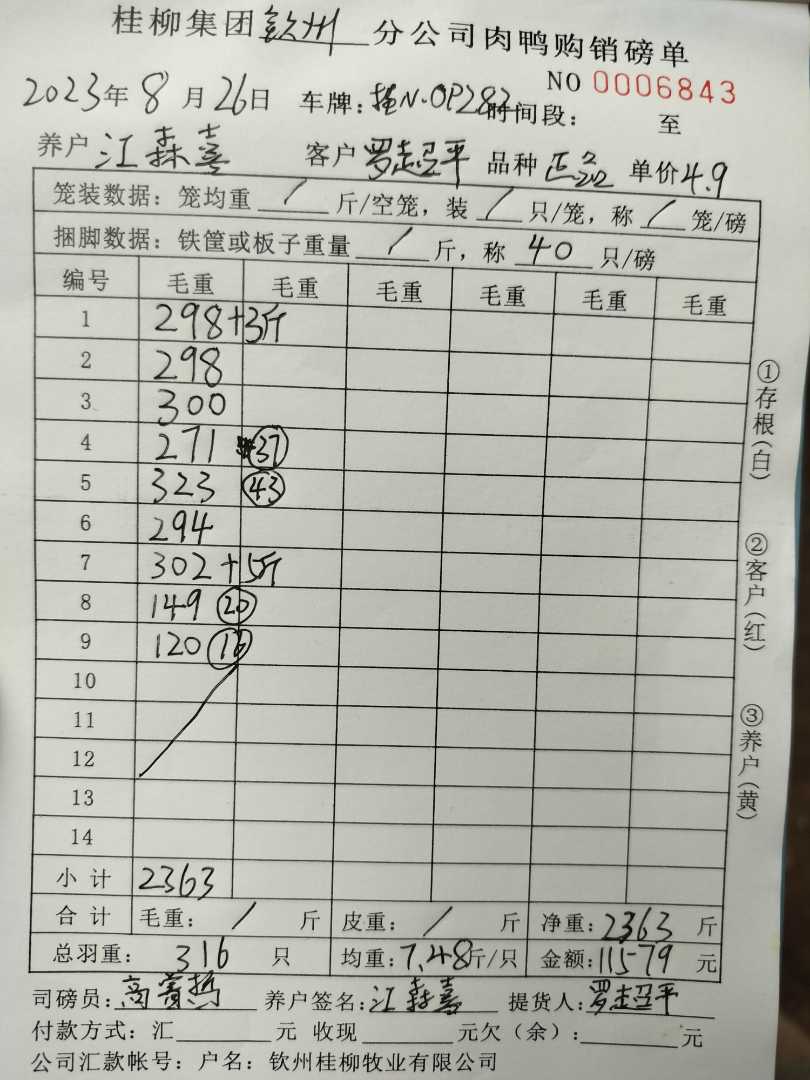 桂柳集团钦州分公司肉鸭购销磅单
NO 0006843
2023年8月26日 车牌：桂N·0P282 时间段： 至
养户 江森喜 客户 罗超平 品种 正品 单价 4.9
笼装数据：笼均重 / 斤/空笼，装 / 只/笼，称 / 笼/磅
捆脚数据：铁筐或板子重量 / 斤，称 40 只/磅
编号 毛重 毛重 毛重 毛重 毛重 毛重
1 298+3斤
2 298
3 300
4 271 37
5 323 43
6 294
7 302+5斤
8 149 20
9 120 16
10
11
12
13
14
小计 2363
合计 毛重： / 斤 皮重： / 斤 净重：2363 斤
总羽重： 316 只 均重：7.48斤/只 金额：11579 元
司磅员： 养户签名：江森喜 提货人：罗超平
付款方式：汇 元 收现 元欠（余）： 元
公司汇款帐号：户名：钦州桂柳牧业有限公司
①存根（白）
②客户（红）
③养户（黄）